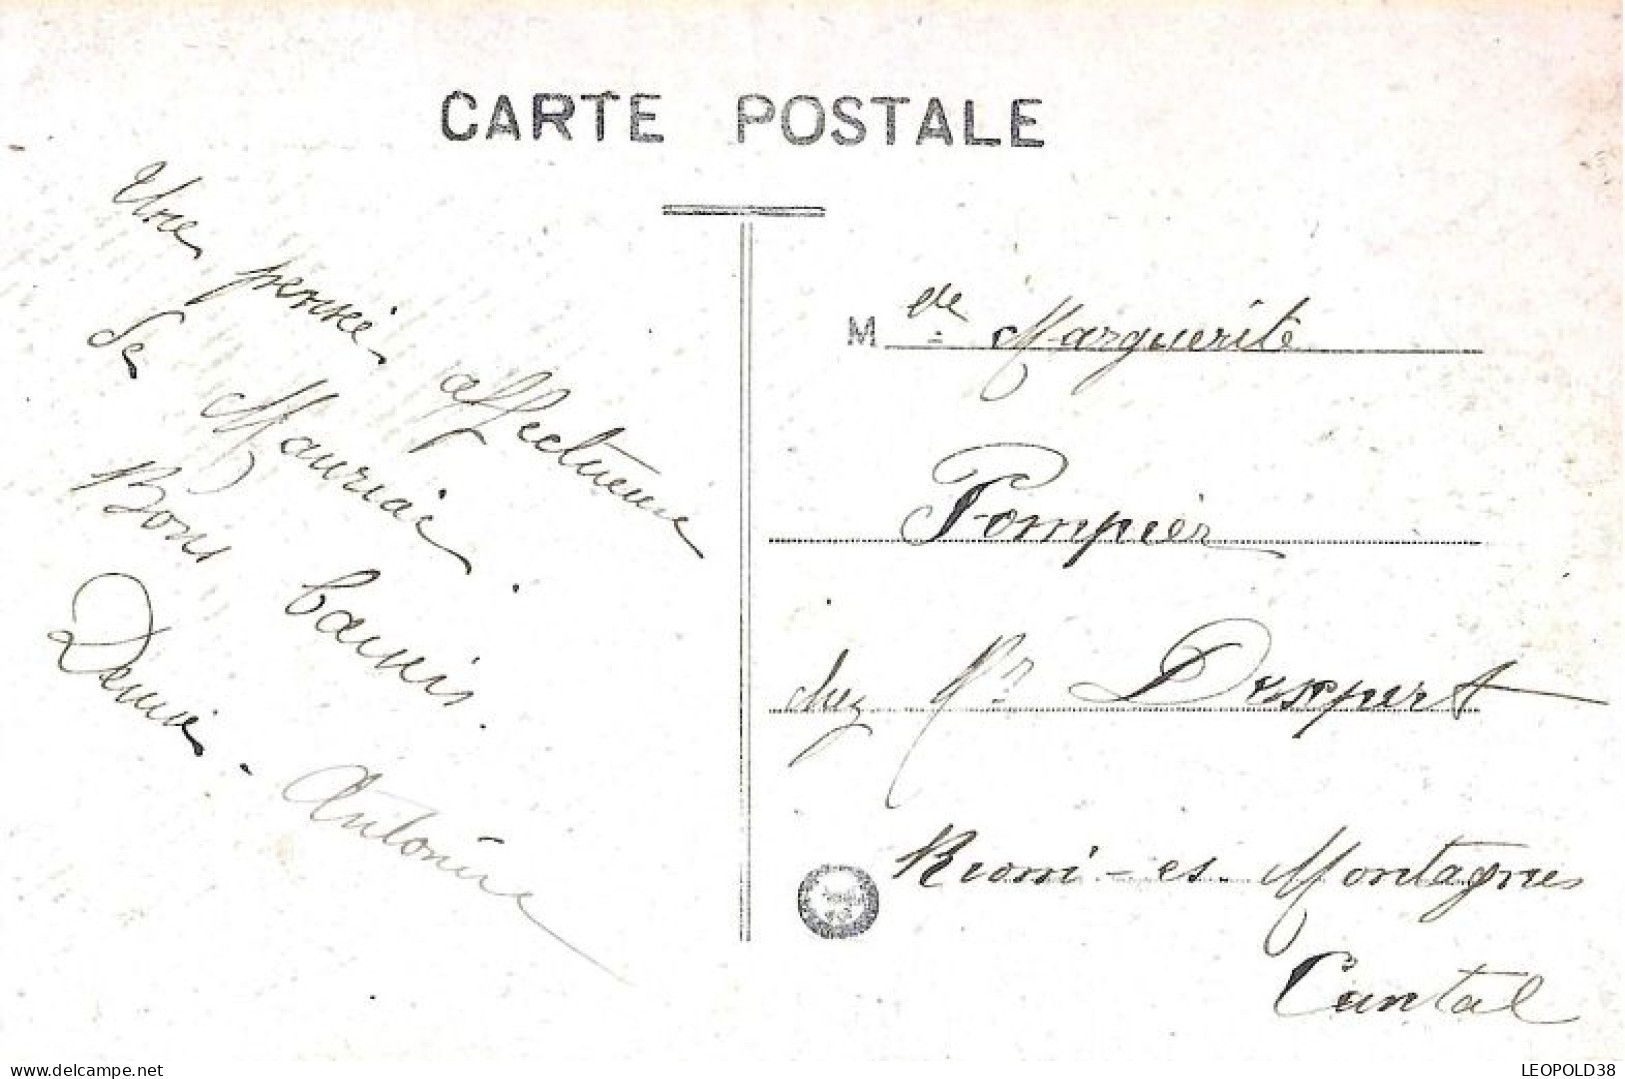 CARTE POSTALE
Une pensée affectueuse
de Mauriac.
Bons baisers.
Antonine
M elle Marguerite
Pompier
chez Mr Despert
Riom-es-Montagnes
Cantal
delcampe.net
LEOPOLD38